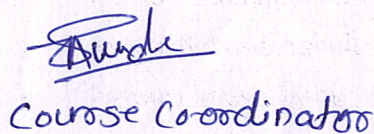 Course Co-ordinator